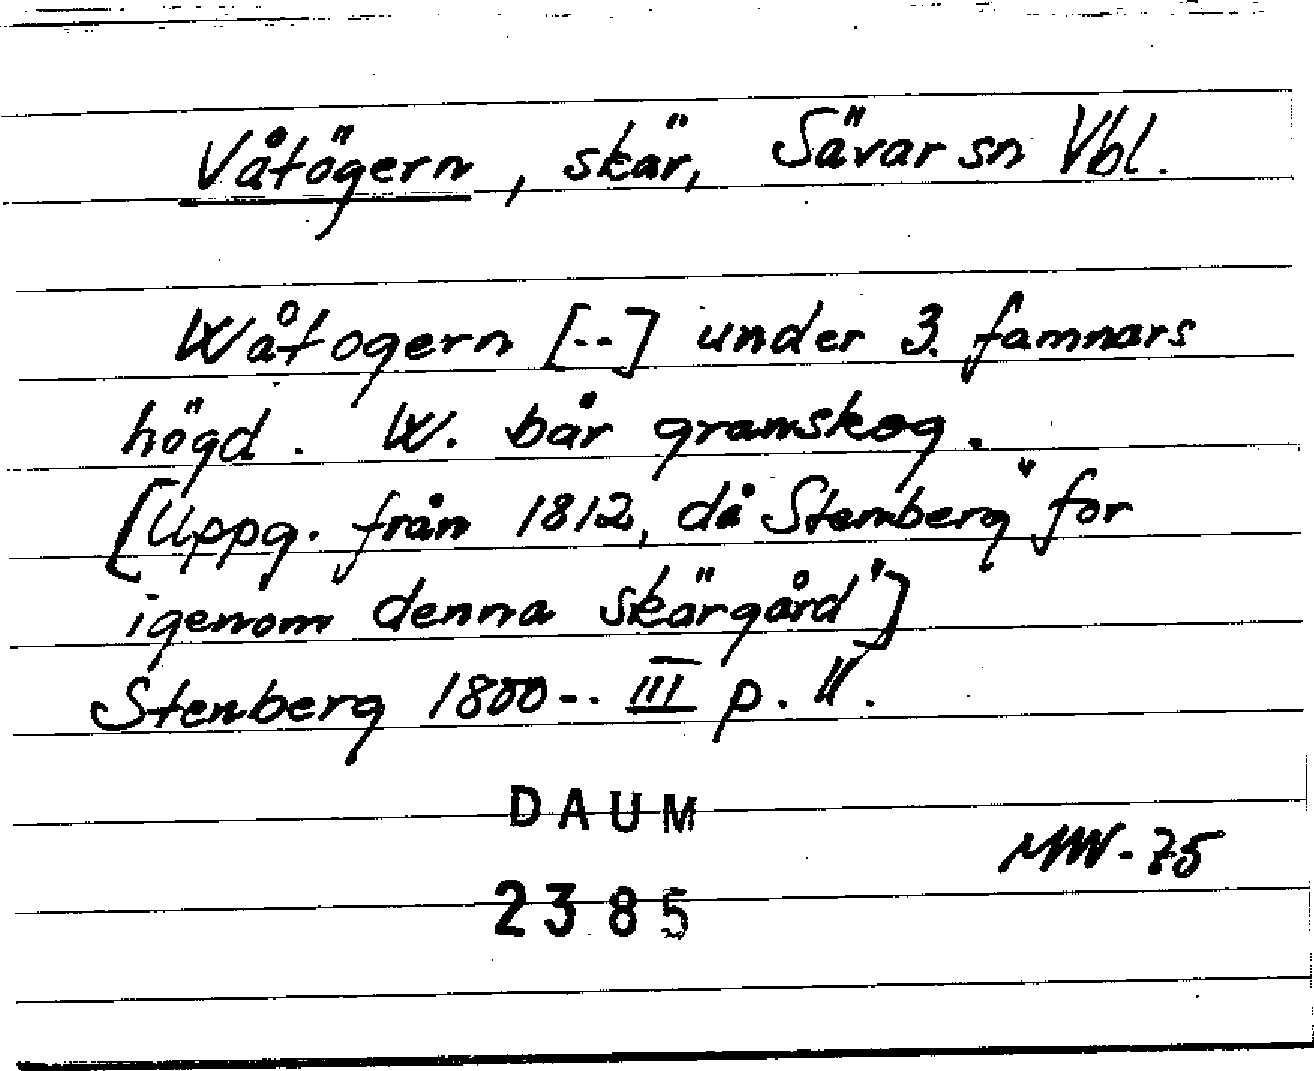 Våtögern, skär, Sävar sn Vbl.
Wåtogern [--] under 3. famnars
högd. W. bår granskog.
[Uppg. från 1812, då Stenberg "for
igenom denna skärgård"]
Stenberg 1800-- III p. 11.
DAUM
MW-75
2385